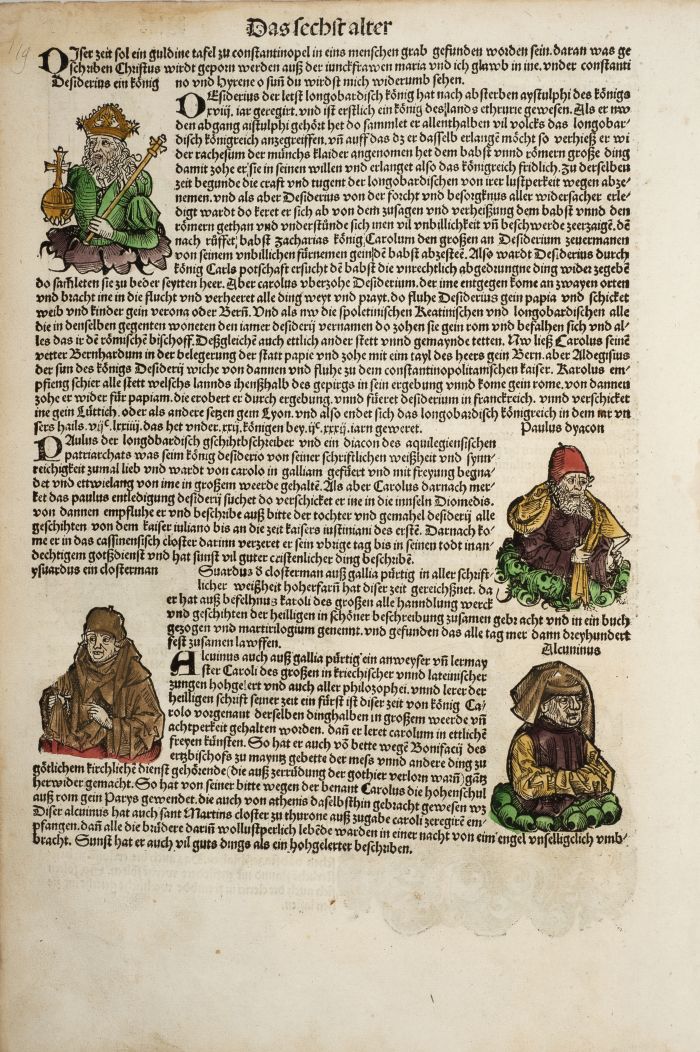 Das sechst alter
DIser zeit sol ein guldine tafel zu constantinopel in eins menschen grab gefunden worden sein. daran was ge
schriben Christus wirdt geporn werden auß der iunckfrawen maria vnd ich glawb in ine. vnder constanti
no vnd Hyrene o sun̄ du wirdst mich widerumb sehen.
Desiderius ein könig
DEsiderius der letst longobardisch könig hat nach absterben aystulphi des königs
xviij. iar geregirt. vnd ist erstlich ein könig des lands ethrurie gewesen. Als er nw
den abgang aistulphi gehört het do sammlet er allenthalben vil volcks das longobar⸗
disch königreich anzegreiffen. vn̄ auff das dz er dasselb erlangē möcht so verhieß er wi
der rachesum der münchs klaider angenomen het dem babst vnnd römern große ding
damit zohe er sie in seinen willen vnd erlanget also das königreich fridlich. Zu derselben
zeit begunde die craft vnd tugent der longobardischen von irer lustperkeit wegen abze⸗
nemen. vnd als aber Desiderius von der forcht vnd besorgknus aller widersacher erle⸗
digt wardt do keret er sich ab von dem zusagen vnd verheißung dem babst vnnd den
römern gethan vnd vnderstünde sich inen vil vnbillichkeit vn̄ beschwerde zeerzaigē. dē
nach rüffet babst zacharias könig Carolum den großen an Desiderium zeuermanen
von seinem vnbillichen fürnemen gein dē babst abzesteē. Also wardt Desiderius durch
könig Carls potschaft ersucht dē babst die vnrechtlich abgedrungne ding wider zegebē
do sam̄leten sie zu beder seytten heer. Aber carolus vberzohe Desiderium. der ime entgegen kome an zwayen orten
vnd bracht ine in die flucht vnd verheeret alle ding weyt vnd prayt. do fluhe Desiderius gein papia vnd schicket
weib vnd kinder gein verona oder Bern̄. Vnd als nw die spoletinischen Keatinischen vnd longobardischen alle
die in denselben gegenten woneten den iamer desiderij vernamen do zohen sie gein rom vnd befalhen sich vnd al⸗
les das ir dē römischē bischoff. Deßgleichē auch ettlich ander stett vnnd gemaynde tetten. Nw ließ Carolus seinē
vetter Bernhardum in der belegerung der statt papie vnd zohe mit ein tayl des heers gein Bern. aber Aldegisus
der sun des königs Desiderij wiche von dannen vnd fluhe zu dem constantinopolitanischen kaiser. Karolus em⸗
pfieng schier alle stett welschs lannds ihenßhalb des gepirgs in sein ergebung vnnd kome gein rome. von dannen
zohe er wider für papiam. die erobert er durch ergebung. vnnd füeret desiderium in franckreich. vnnd verschicket
ine gein Lüttich. oder als andere setzen gein Lyon. vnd also endet sich das longobardisch königreich in dem iar vn
sers hails. vijᶜ. lxxiiij. das het vnder. xxij. königen bey. ijᶜ. xxxij. iarn geweret.
Paulus dyacon
PAulus der longobardisch geschihtbschreiber vnd ein diacon des aquilegiensischen
patriarchats was seim könig desiderio von seiner schriftlichen weißheit vnd synn⸗
reichigkeit zumal lieb vnd wardt von carolo in galliam gefüert vnd mit freyung begna⸗
det vnd ettwielang von ime in großem werde gehaltē. Als aber Carolus darnach mer⸗
ket das paulus entledigung desiderij suchet do verschicket er ine in die innseln Diomedis.
von dannen empfluhe er vnd beschribe auß bitte der tochter vnd gemahel desiderij alle
geschihten von dem kaiser iuliano bis an die zeit kaisers iustiniani des erstē. Darnach ko⸗
me er in das cassinensisch closter darinn verzeret er sein vbrige tag bis in seinen todt in an⸗
dechtigem gotßdienst vnd hat sunst vil guter cristenlicher ding beschribē.
ysuardus ein closterman
Suardus d̄ closterman auß gallia pürtig in aller schrift⸗
licher weißheit hoherfarn̄ hat diser zeit gereichßnet. da
er hat auß befelhnus karoli des großen alle hanndlung werck
vnd geschihten der heilligen in schöner beschreibung zusamen gebracht vnd in ein buch
gezogen vnd martirilogium genennt. vnd gefunden das alle tag mer dann dreyhundert
fest zusamen lawffen.
Alcuninus
Alcuinus auch auß gallia pürtig ein anweyser vn̄ lermay
ster Caroli des großen in kriechischer vnnd lateinischer
zungen hohgelert vnd auch aller philozophei. vnnd lerer der
heilligen schrift seiner zeit ein fürst ist diser zeit von könig Ca⸗
rolo vorgenant derselben dinghalben in großem weerde vn̄
achtperkeit gehalten worden. dan̄ er leret carolum in ettlichē
freyen künsten. So hat er auch vō bette wegē Bonifacij des
ertzbischofs zu mayntz gebette der mess vnnd andere ding zu
götlichem kirchlichē dienst gehörende (die auß zerrüdung der gothier verlorn warn̄) gātz
herwider gemacht. So hat von seiner bitte wegen der benant Carolus die hohenschul
auß rom gein Parys gewendet. die auch von athenis daselbsthin gebracht gewesen wz
Diser alcuinus hat auch sant Martins closter zu thurone auß zugabe caroli zeregirē em⸗
pfangen. dan̄ alle die brüdere darin̄ wollustperlich lebēde warden in einer nacht von eim engel vnselligclich vmb⸗
bracht. Sunst hat er auch vil guts dings als ein hohgelerter beschriben.